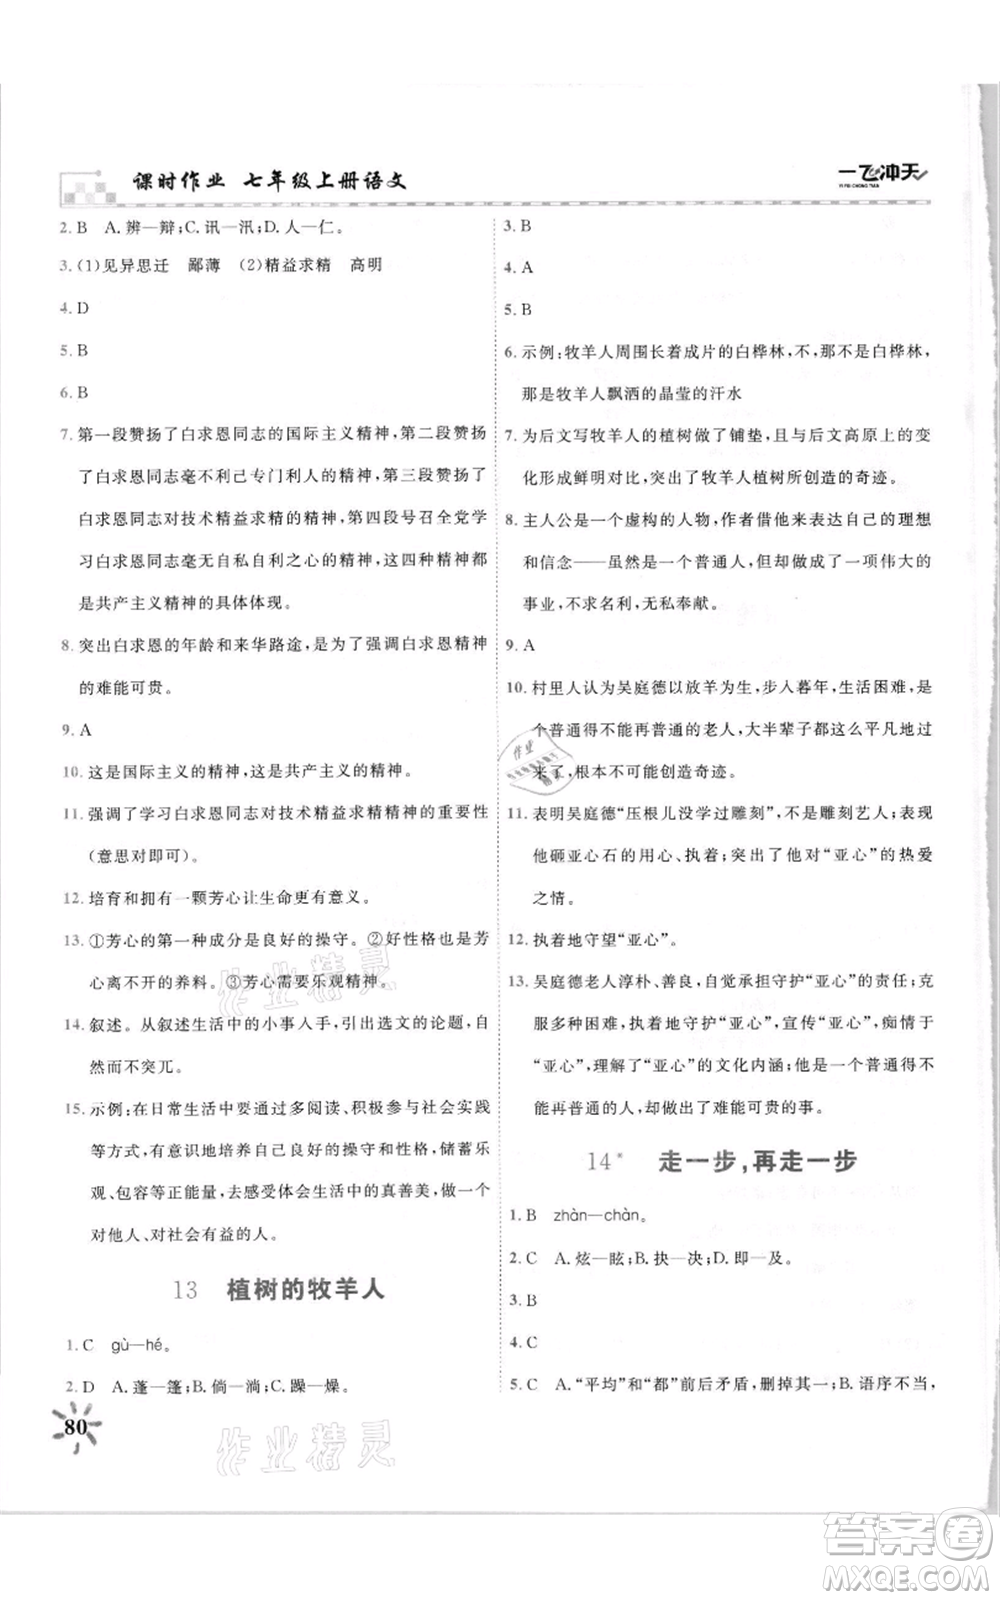 课时作业 七年级上册语文
一飞冲天
YI FEI CHONG TIAN
2. B A. 辨—辩;C. 讯—汛;D. 人—仁。
3. (1)见异思迁 鄙薄 (2)精益求精 高明
4. D
5. B
6. B
7. 第一段赞扬了白求恩同志的国际主义精神,第二段赞扬
了白求恩同志毫不利己专门利人的精神,第三段赞扬了
白求恩同志对技术精益求精的精神,第四段号召全党学
习白求恩同志毫无自私自利之心的精神,这四种精神都
是共产主义精神的具体体现。
8. 突出白求恩的年龄和来华路途,是为了强调白求恩精神
的难能可贵。
9. A
10. 这是国际主义的精神,这是共产主义的精神。
11. 强调了学习白求恩同志对技术精益求精精神的重要性
(意思对即可)。
12. 培育和拥有一颗芳心让生命更有意义。
13. ①芳心的第一种成分是良好的操守。②好性格也是芳
心离不开的养料。③芳心需要乐观精神。
14. 叙述。从叙述生活中的小事入手,引出选文的论题,自
然而不突兀。
15. 示例:在日常生活中要通过多阅读、积极参与社会实践
等方式,有意识地培养自己良好的操守和性格,储蓄乐
观、包容等正能量,去感受体会生活中的真善美,做一个
对他人、对社会有益的人。
13 植树的牧羊人
1. C gù—hé。
2. D A. 蓬—篷;B. 倘—淌;C. 躁—燥。
80
3. B
4. A
5. B
6. 示例:牧羊人周围长着成片的白桦林,不,那不是白桦林,
那是牧羊人飘洒的晶莹的汗水
7. 为后文写牧羊人的植树做了铺垫,且与后文高原上的变
化形成鲜明对比,突出了牧羊人植树所创造的奇迹。
8. 主人公是一个虚构的人物,作者借他来表达自己的理想
和信念——虽然是一个普通人,但却做出了一项伟大的
事业,不求名利,无私奉献。
9. A
10. 村里人认为吴庭德以放羊为生,步入暮年,生活困难,是
个普通得不能再普通的老人,大半辈子都这么平凡地过
来了,根本不可能创造奇迹。
11. 表明吴庭德“压根儿没学过雕刻”,不是雕刻艺人;表现
他砸亚心石的用心、执着;突出了他对“亚心”的热爱
之情。
12. 执着地守望“亚心”。
13. 吴庭德老人淳朴、善良,自觉承担守护“亚心”的责任,克
服多种困难,执着地守护“亚心”,宣传“亚心”,痴情于
“亚心”,理解了“亚心”的文化内涵;他是一个普通得不
能再普通的人,却做出了难能可贵的事。
14* 走一步,再走一步
1. B zhàn—chàn。
2. C A. 炫—眩;B. 抉—决;D. 即—及。
3. B
4. C
5. C A.“平均”和“都”前后矛盾,删掉其一;B. 语序不当,
作业精灵
作业精灵
作业精灵
答案卷
MXQE.COM